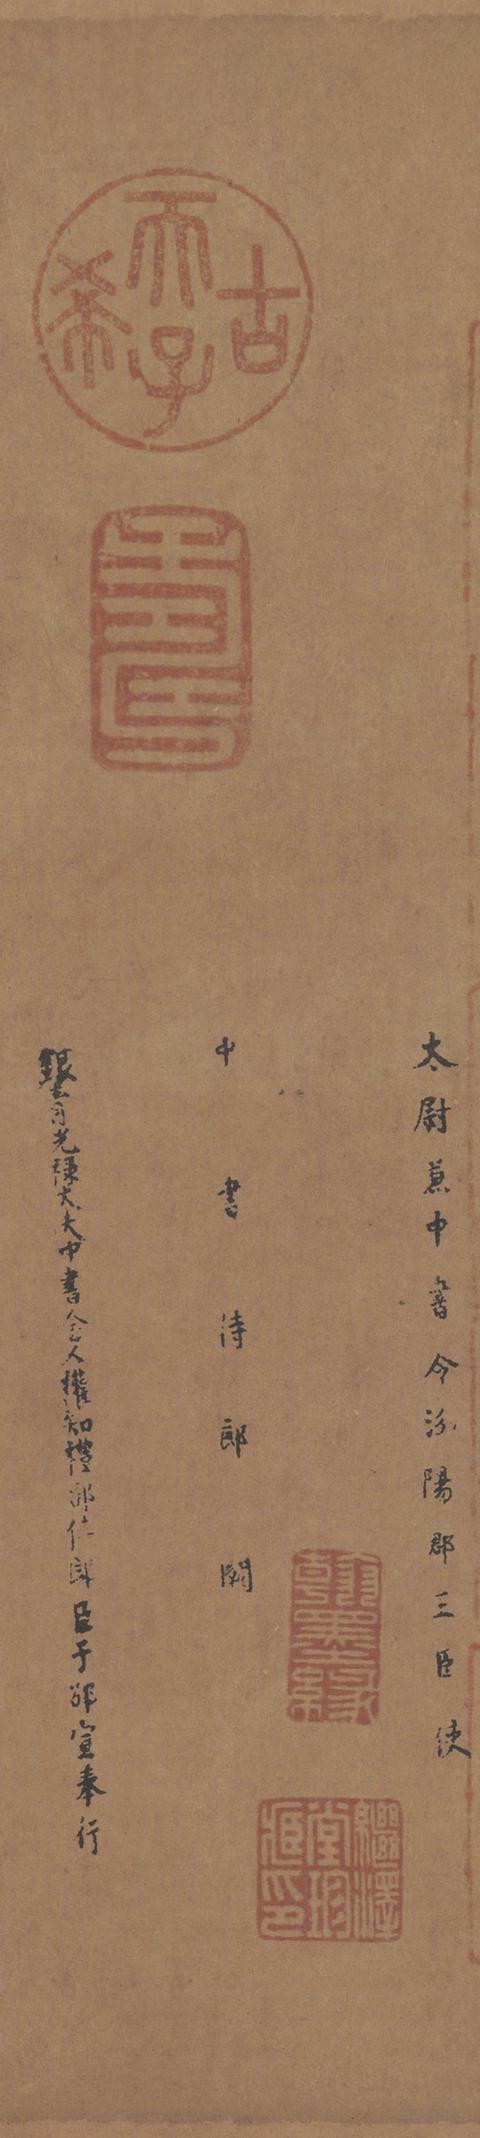 太尉兼中書令汾陽郡王臣 使
中書侍郎闕
銀青光祿大夫中書舍人權知禮部侍郎臣于邵宣奉行
古希天子
壽
翰墨緣
繼澤堂珍藏印